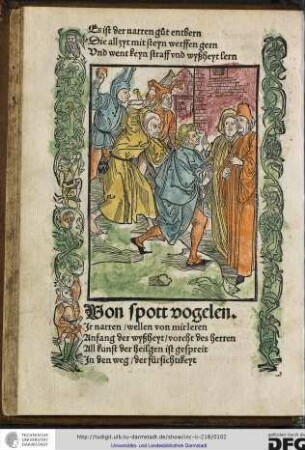 Es ist der narren gůt entbern
Die all zyt mit steyn werffen gern
Vnd went keyn straff vnd wyßheyt lern
Von spott vogelen.
Ir narren / wellen von mir leren
Anfang der wyßheyt / vorcht des herren
All kunst der heilgen ist gespreit
In den weg / der fürsichtikeyt
TECHNISCHE
UNIVERSITÄT
DARMSTADT
http://tudigit.ulb.tu-darmstadt.de/show/inc-ii-218/0102
Universitäts- und Landesbibliothek Darmstadt
gefördert durch die
DFG